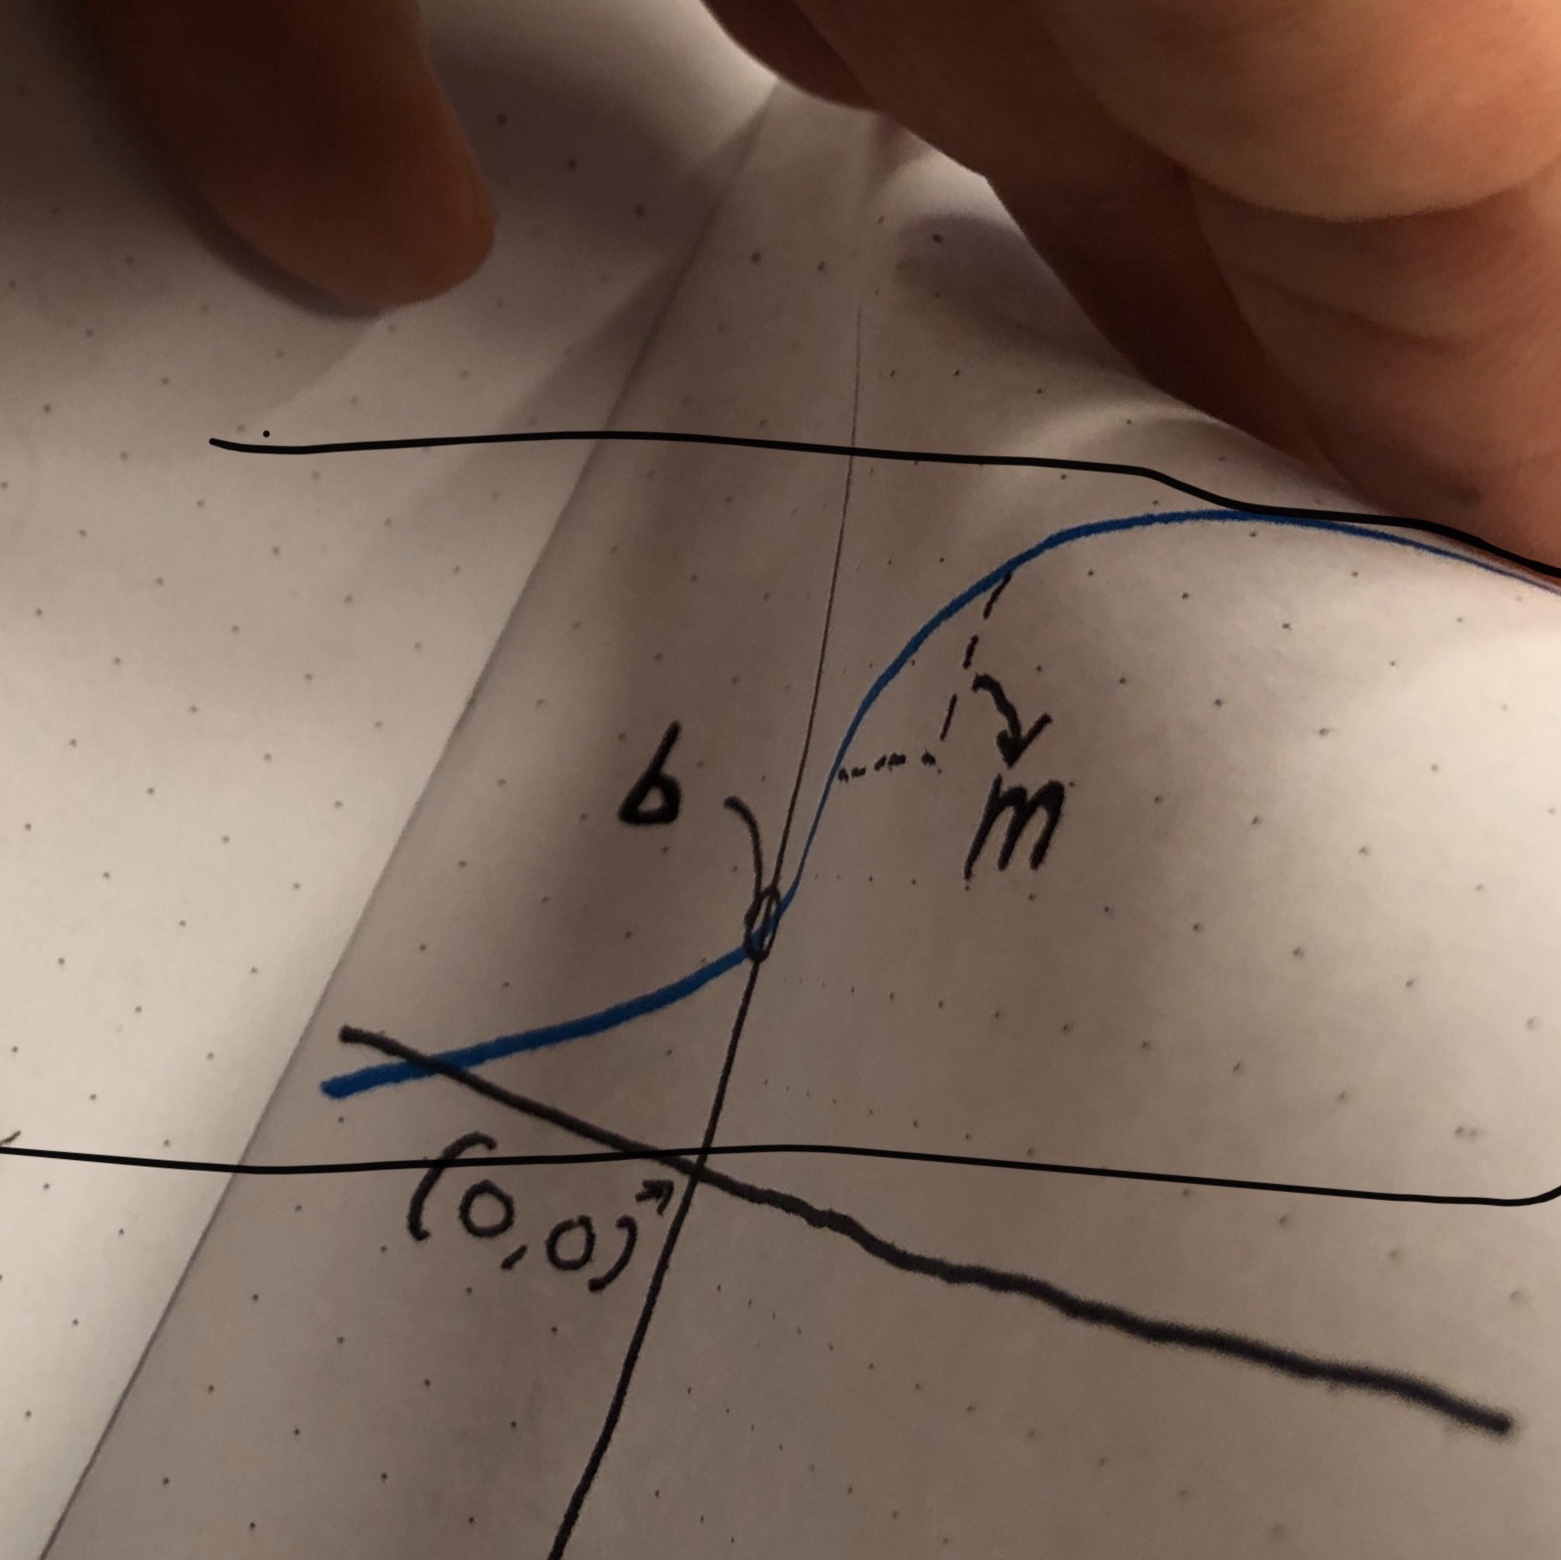 b
m
(0,0)